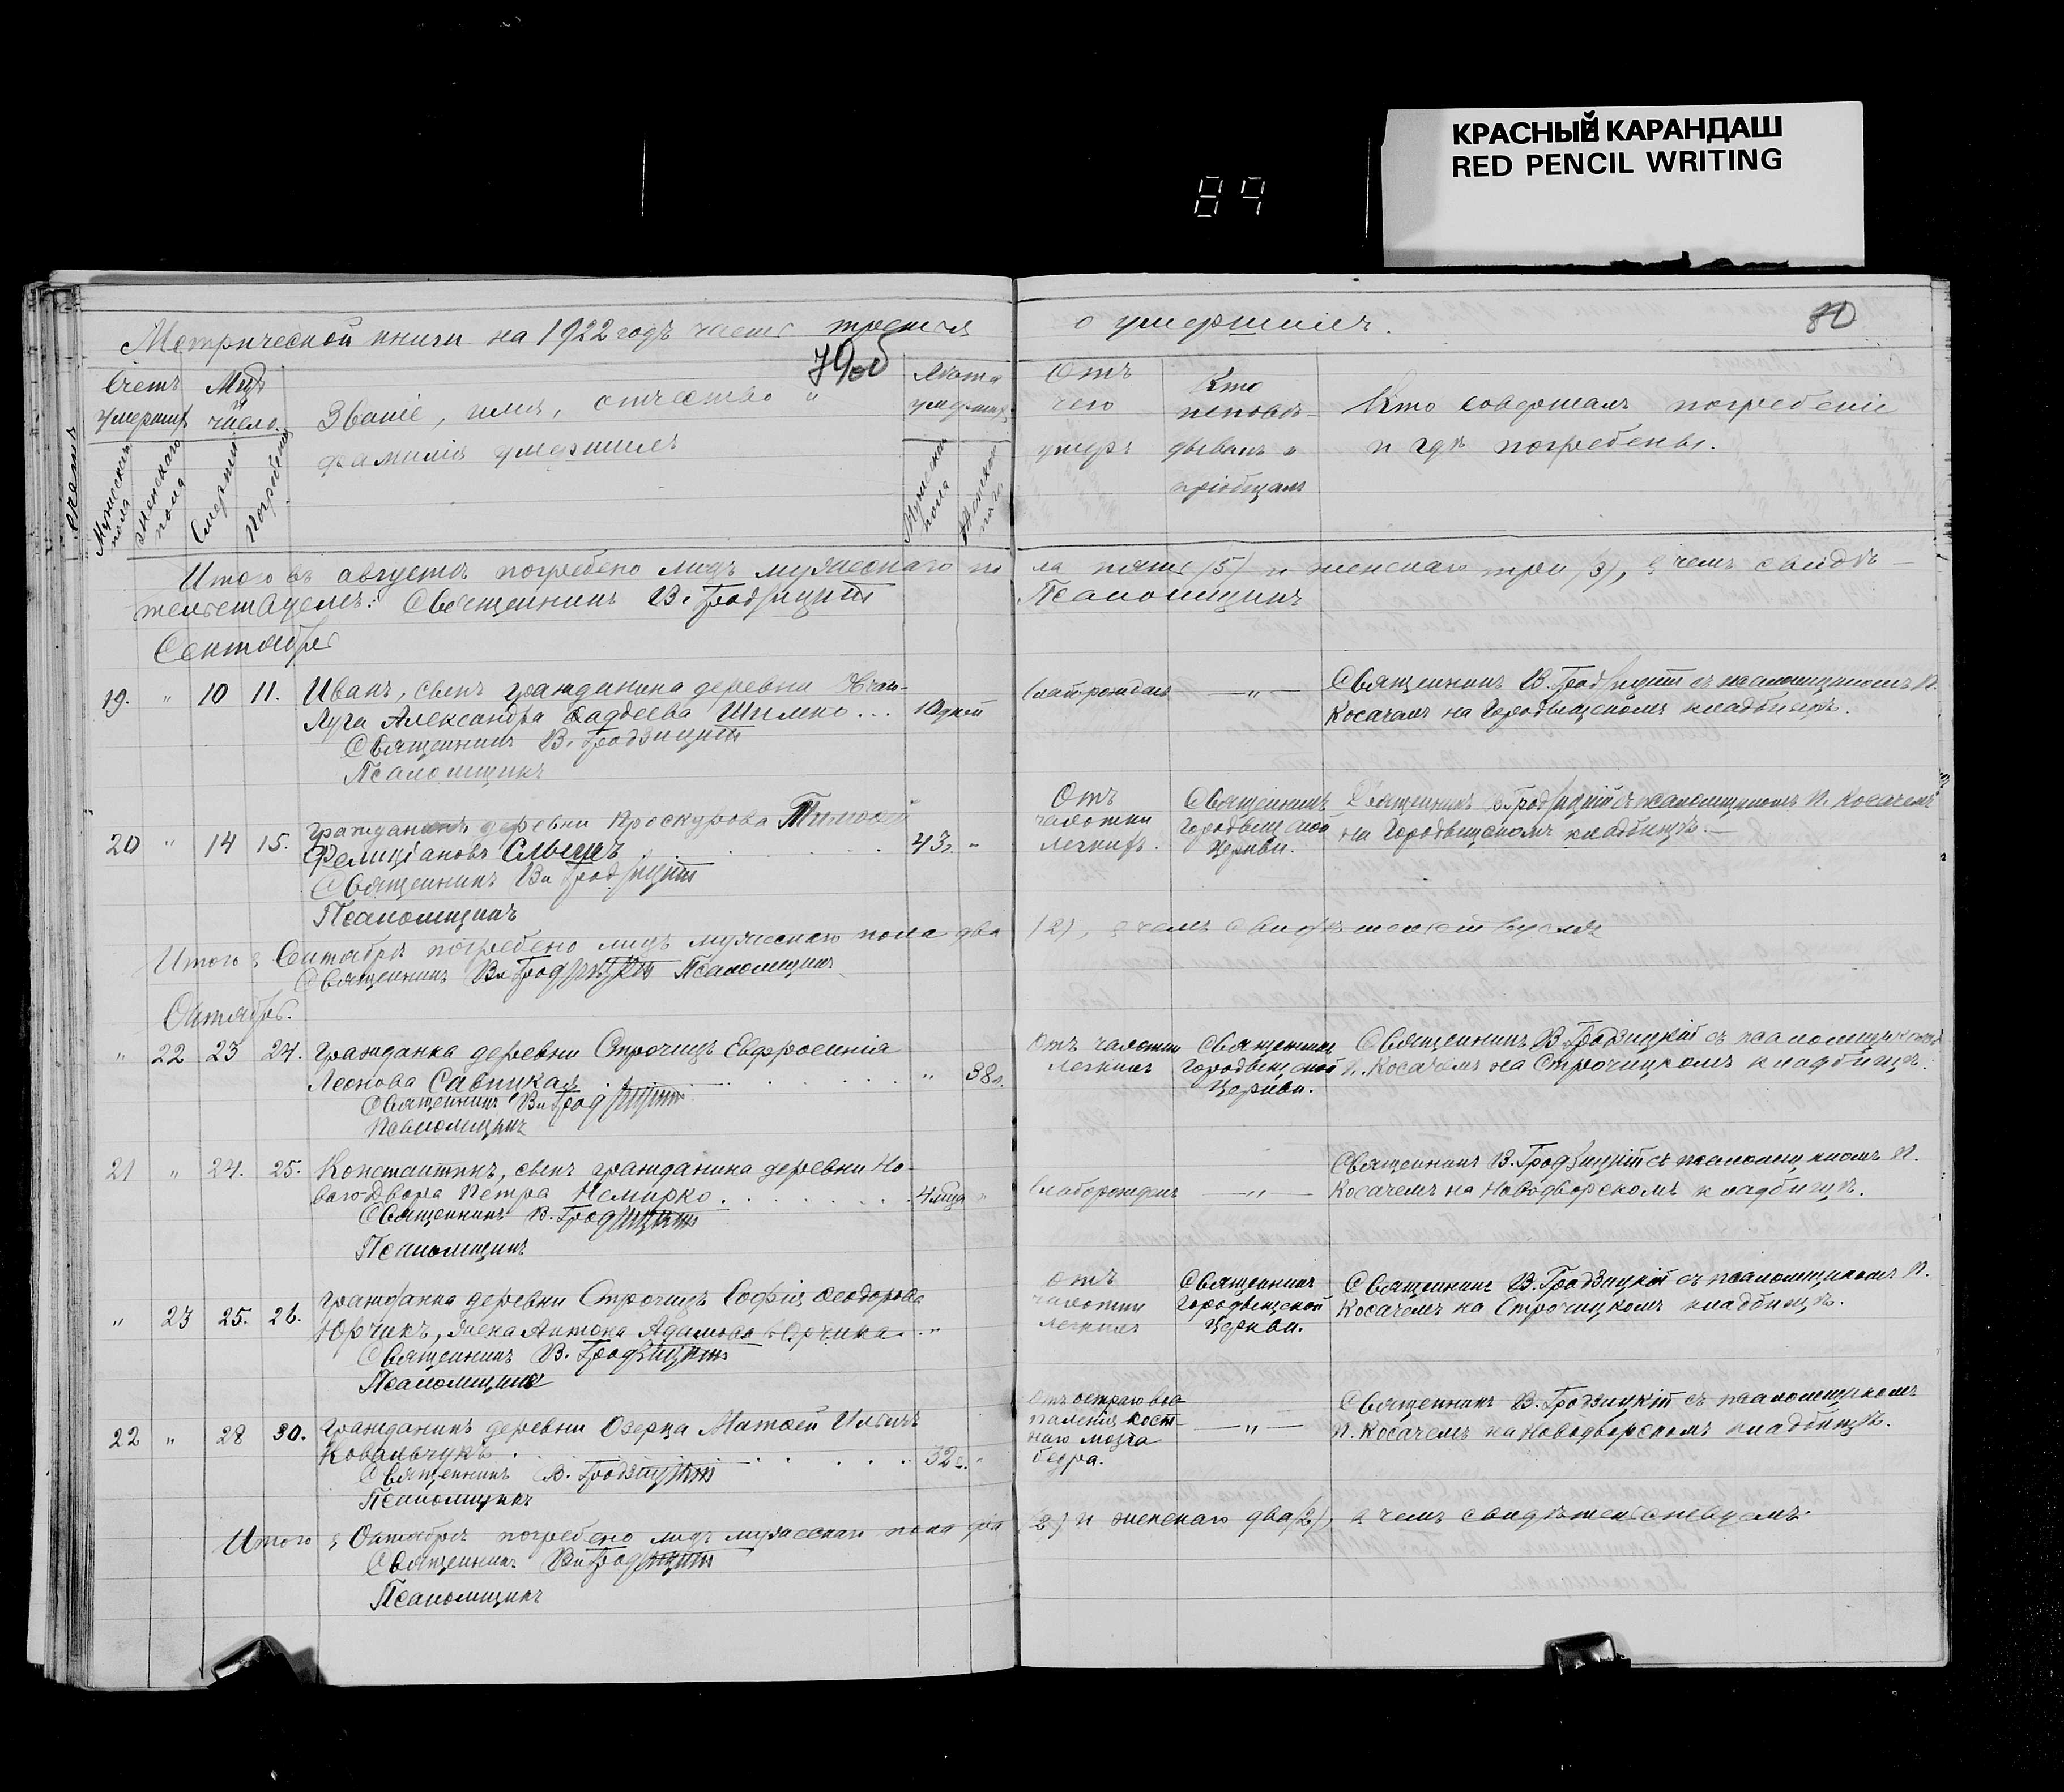 КРАСНЫЙ КАРАНДАШ
RED PENCIL WRITING
89
Метрической книги на 1922 годъ часть третья
о умершихъ.
80
79об
Счетъ умершихъ
Мужескаго пола
Женскаго пола
Мцъ и число
Смерти
Погребенія
Званіе, имя, отчество и
фамилія умершихъ
Лѣта умершихъ
Мужескаго пола
Женскаго пола
Отъ
чего
умеръ
Кто
исповѣ-
дывалъ и
пріобщалъ
Кто совершалъ погребеніе
и гдѣ погребены.
Итого въ августѣ погребено лицъ мужескаго по
ла пять (5) и женскаго три (3), о чемъ свидѣ-
тельствуемъ: Священникъ В. Гродзицкій
Псаломщикъ
Сентябрь
19. " 10 11. Иванъ, сынъ гражданина деревни
Луга Александра Фаддеева Шимко... 10 дней
Священникъ В. Гродзицкій
Псаломщикъ
слаборожден. — " —
Священникъ В. Гродзицкій съ псаломщикомъ П.
Косачемъ на Городищскомъ кладбищѣ.
20 " 14 15. Гражданинъ деревни Проскурова Тимоѳей
Фелиціановъ 43г. "
Священникъ Вл. Гродзицкій
Псаломщикъ
Отъ
чахотки
легкихъ.
Священникъ
Городищской
Церкви.
Священникъ В. Гродзицкій съ псаломщикомъ П. Косачемъ
на Городищскомъ кладбищѣ.—
Итого в Сентябрѣ погребено лицъ мужескаго пола два
(2), о чемъ свидѣтельствуемъ
Священникъ Вл. Гродзицкій Псаломщикъ
Октябрь.
" 22 23 24. Гражданка деревни Строчицъ Евфросинія
Леонова Савицкая " 38л.
Священникъ Вл. Гродзицкій
Псаломщикъ
Отъ чахотки
легкихъ
Священникъ
Городищской
Церкви.
Священникъ В. Гродзицкій съ псаломщикомъ
П. Косачемъ на Строчицкомъ кладбищѣ.
21 " 24. 25. Константинъ, сынъ гражданина деревни Но-
ваго-Двора Петра Немирко 4 мца "
Священникъ В. Гродзицкій
Псаломщикъ
слаборожден. — " —
Священникъ В. Гродзицкій съ псаломщикомъ П.
Косачемъ на Новодворскомъ кладбищѣ.
" 23 25. 26. Гражданка деревни Строчицъ Софія Ѳеодорова
Юрчикъ, жена Антона Адамова Юрчика "
Священникъ В. Гродзицкій
Псаломщикъ
отъ
чахотки
легкихъ
Священникъ
Городищской
Церкви.
Священникъ В. Гродзицкій съ псаломщикомъ П.
Косачемъ на Строчицкомъ кладбищѣ.
22 " 28 30. Гражданинъ деревни Озерца Матѳей Ильичъ
Ковальчукъ 32г. "
Священникъ В. Гродзицкій
Псаломщикъ
Отъ остраго вос-
паленія кост-
наго мозга
бедра.
— " —
Священникъ В. Гродзицкій съ псаломщикомъ
П. Косачемъ на Новодворскомъ кладбищѣ.
Итого в Октябрѣ погребено лицъ мужескаго пола два
(2) и женскаго два (2), о чемъ свидѣтельствуемъ.
Священникъ Вл. Гродзицкій
Псаломщикъ